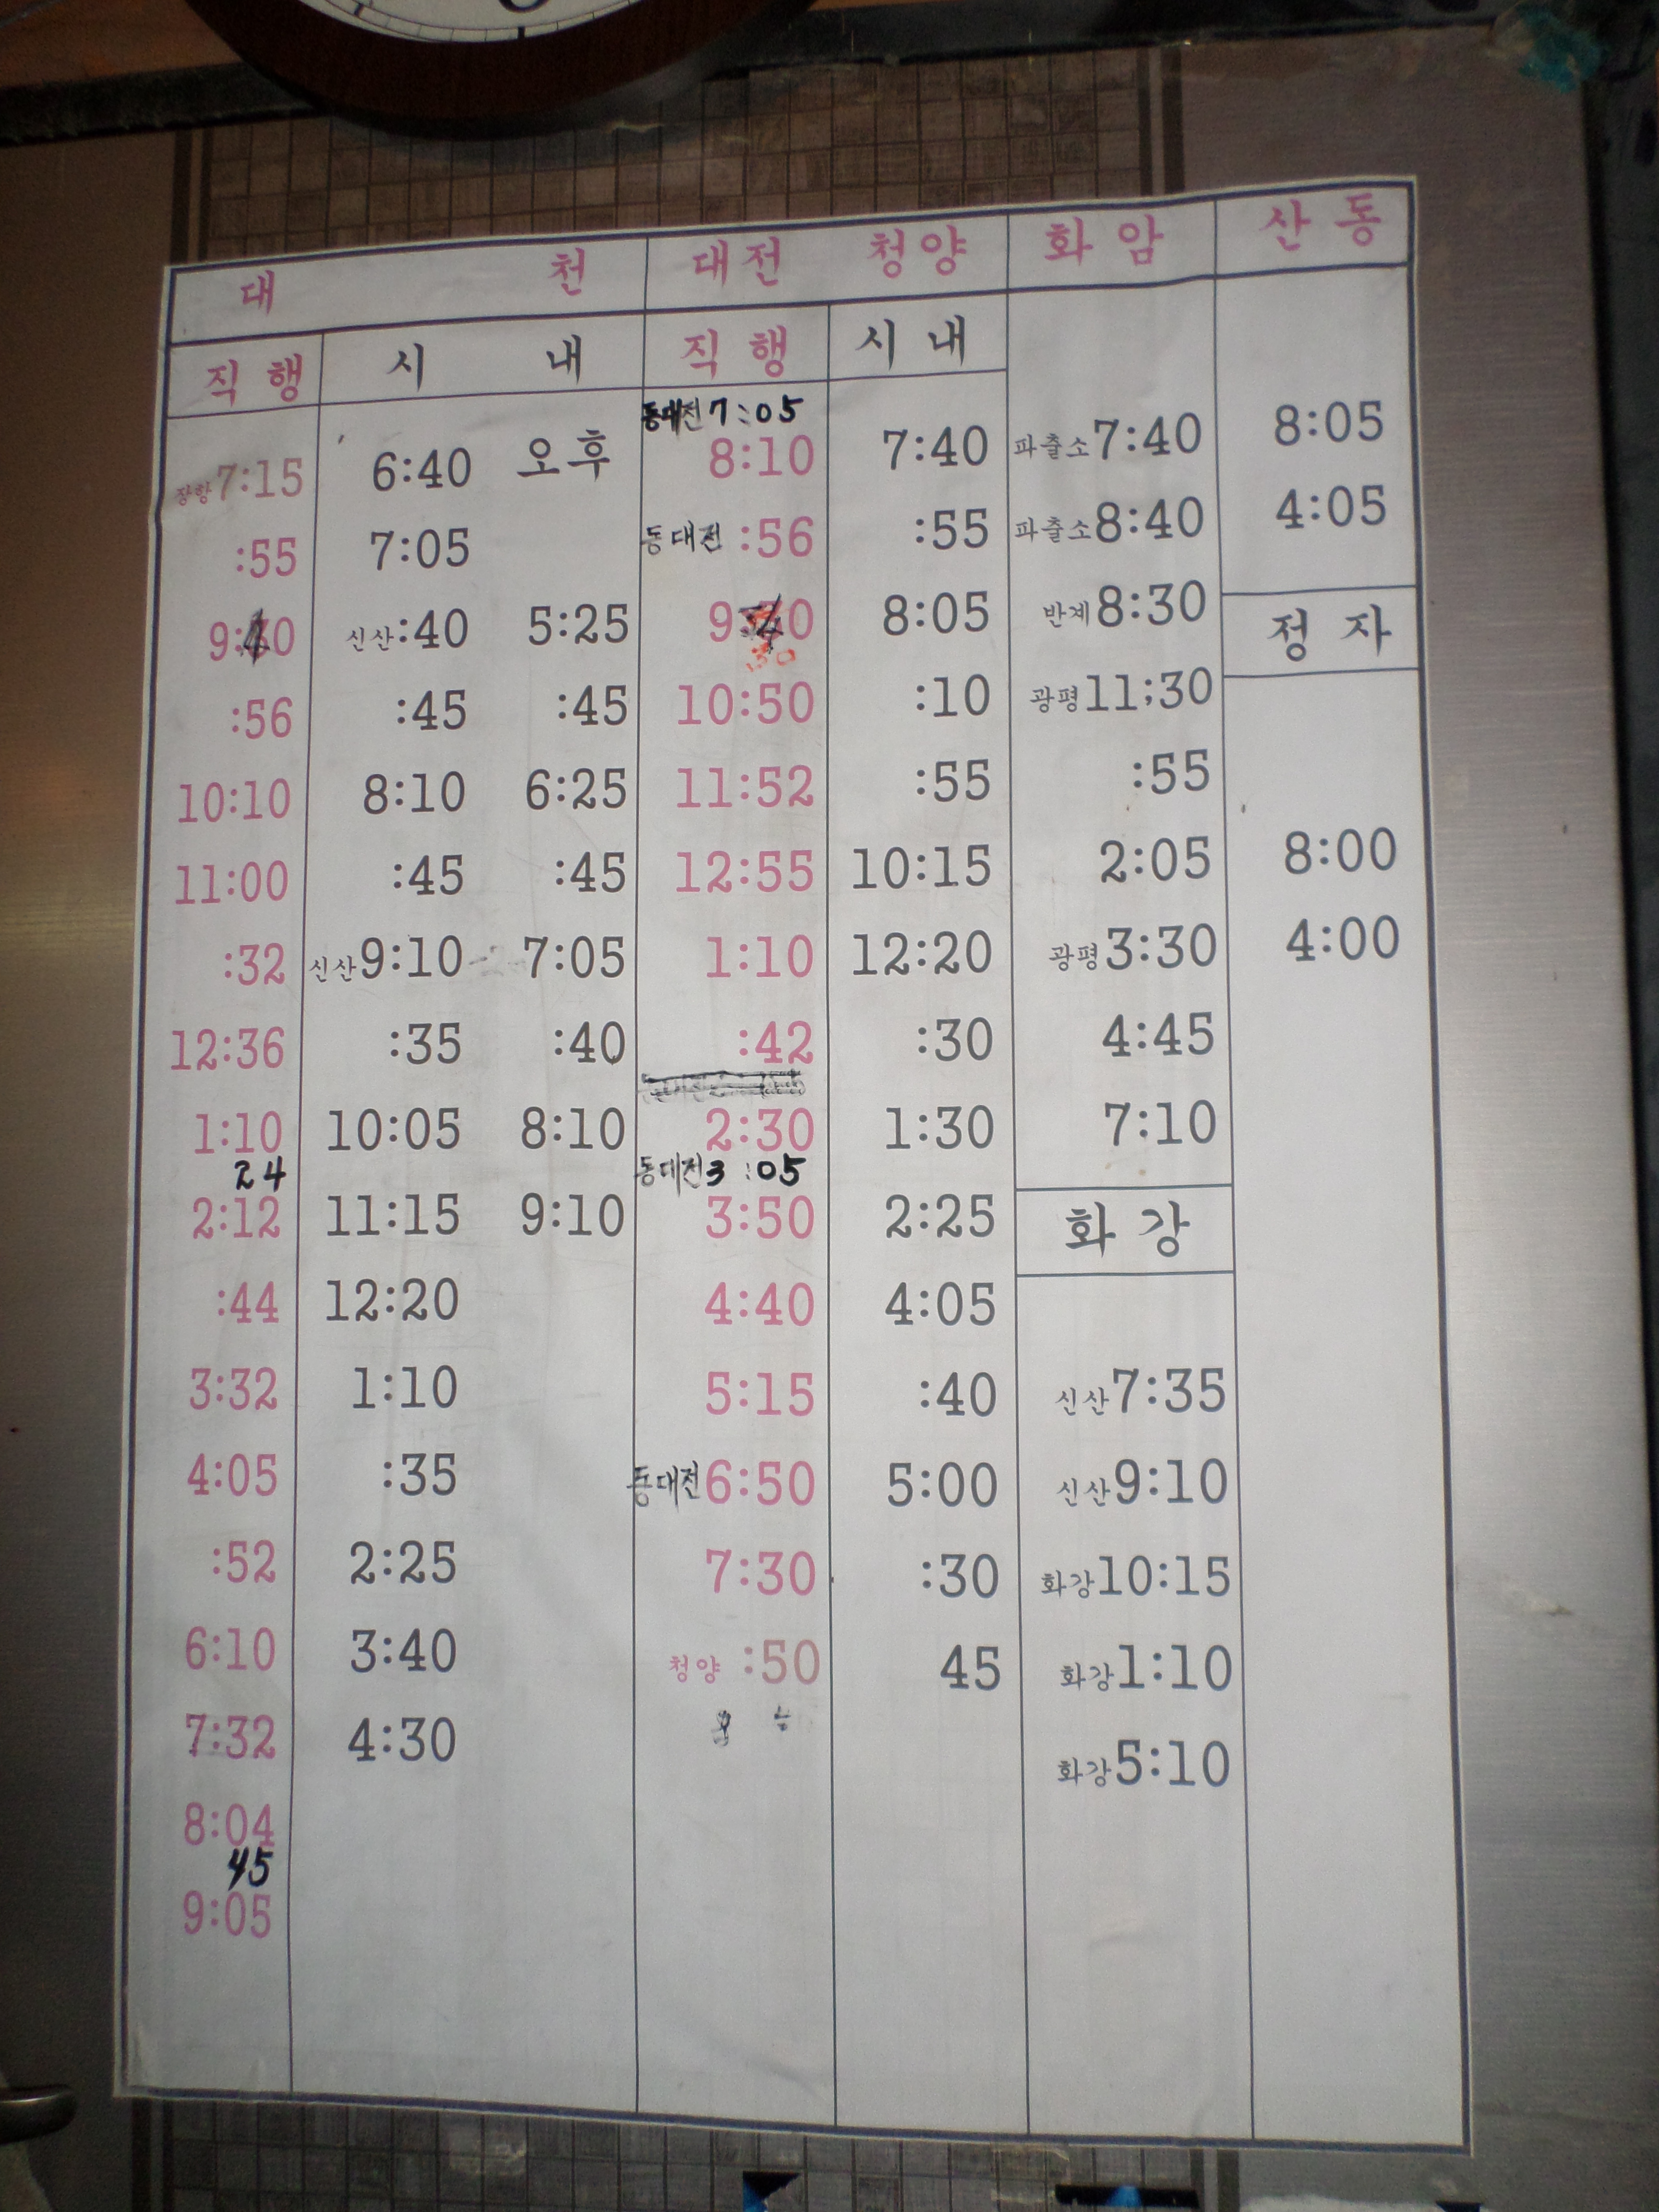 대 천 대전 청양 화암 산동
직행 시 내 직행 시내
동대전 7:05
장항 7:15 6:40 오후 8:10 7:40 파출소 7:40 8:05
:55 7:05 동대전 :56 :55 파출소 8:40 4:05
신산 :40 5:25 8:05 반계 8:30 정자
:30
:56 :45 :45 10:50 :10 광평 11;30
10:10 8:10 6:25 11:52 :55 :55
11:00 :45 :45 12:55 10:15 2:05 8:00
:32 신산 9:10 7:05 1:10 12:20 광평 3:30 4:00
12:36 :35 :40 :42 :30 4:45
1:10 10:05 8:10 2:30 1:30 7:10
24 동대전 3:05
2:12 11:15 9:10 3:50 2:25 화강
:44 12:20 4:40 4:05
3:32 1:10 5:15 :40 신산 7:35
4:05 :35 동대전 6:50 5:00 신산 9:10
:52 2:25 7:30 :30 화강 10:15
6:10 3:40 청양 :50 45 화강 1:10
7:32 4:30 화강 5:10
8:04
45
9:05